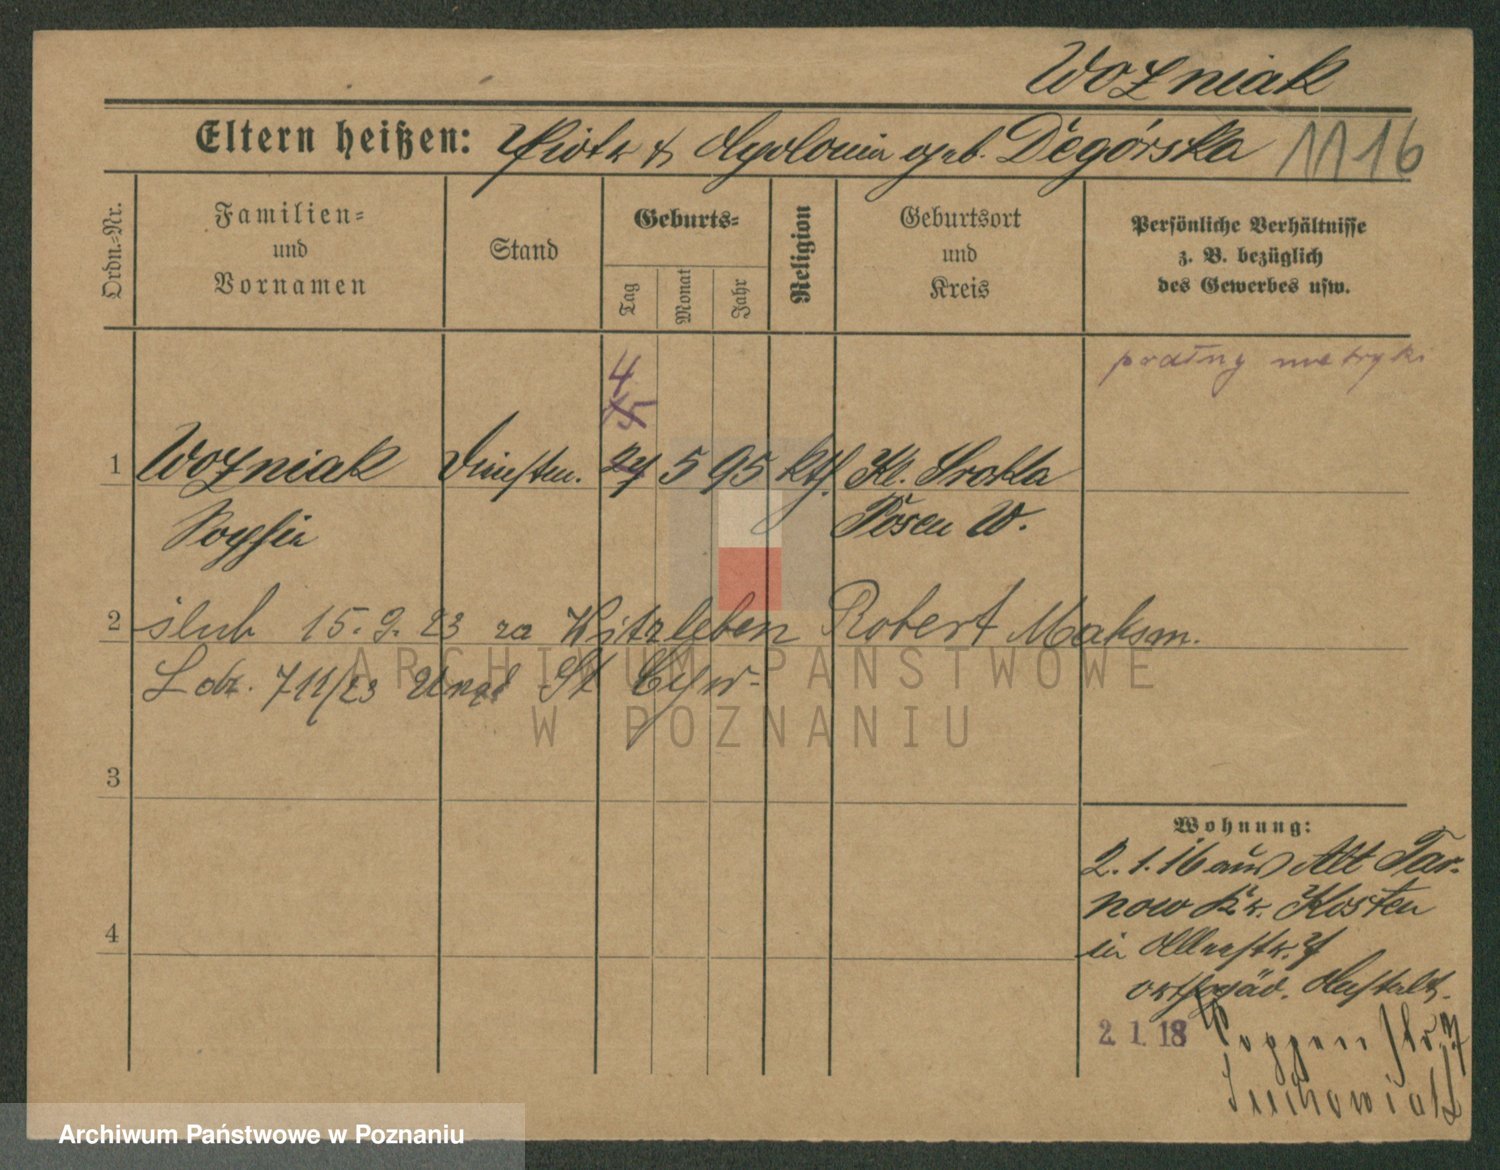 Woźniak
Eltern heißen: Piotr & Apolonia geb. Degórska 1116
Ordn.-Nr.
Familien- und Vornamen
Stand
Geburts-
Tag
Monat
Jahr
Religion
Geburtsort und Kreis
Persönliche Verhältnisse z. B. bezüglich des Gewerbes usw.
podług metryki
4
15
1 Woźniak 5 95 kth. Kl. Srokla
Sophia Posen W.
2 ślub 15.9.23 za Witzleben Robert Maksm.
L dz. 711/23 Urząd St Cyw-
3
4
Wohnung:
2.1.16 aus Alt Tar-
now Kr. Kosten
in
orthopäd. Anstalt.
2. 1. 18 str. 7
ARCHIWUM PAŃSTWOWE
W POZNANIU
Archiwum Państwowe w Poznaniu